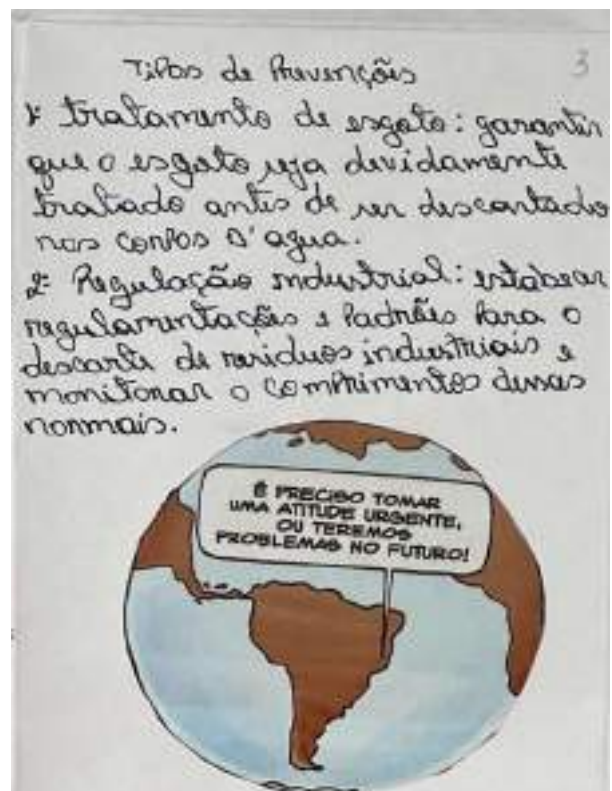 Tipos de Prevenções
3
1- tratamento de esgoto: garantir
que o esgoto seja devidamente
tratado antes de ser descartado
nos corpos D'agua.
2- Regulação industrial: estabecer
regulamentações e Padrões Para o
descarte de residuos industriais e
monitorar o comprimentos dessas
normais.
É PRECISO TOMAR
UMA ATITUDE URGENTE,
OU TEREMOS
PROBLEMAS NO FUTURO!